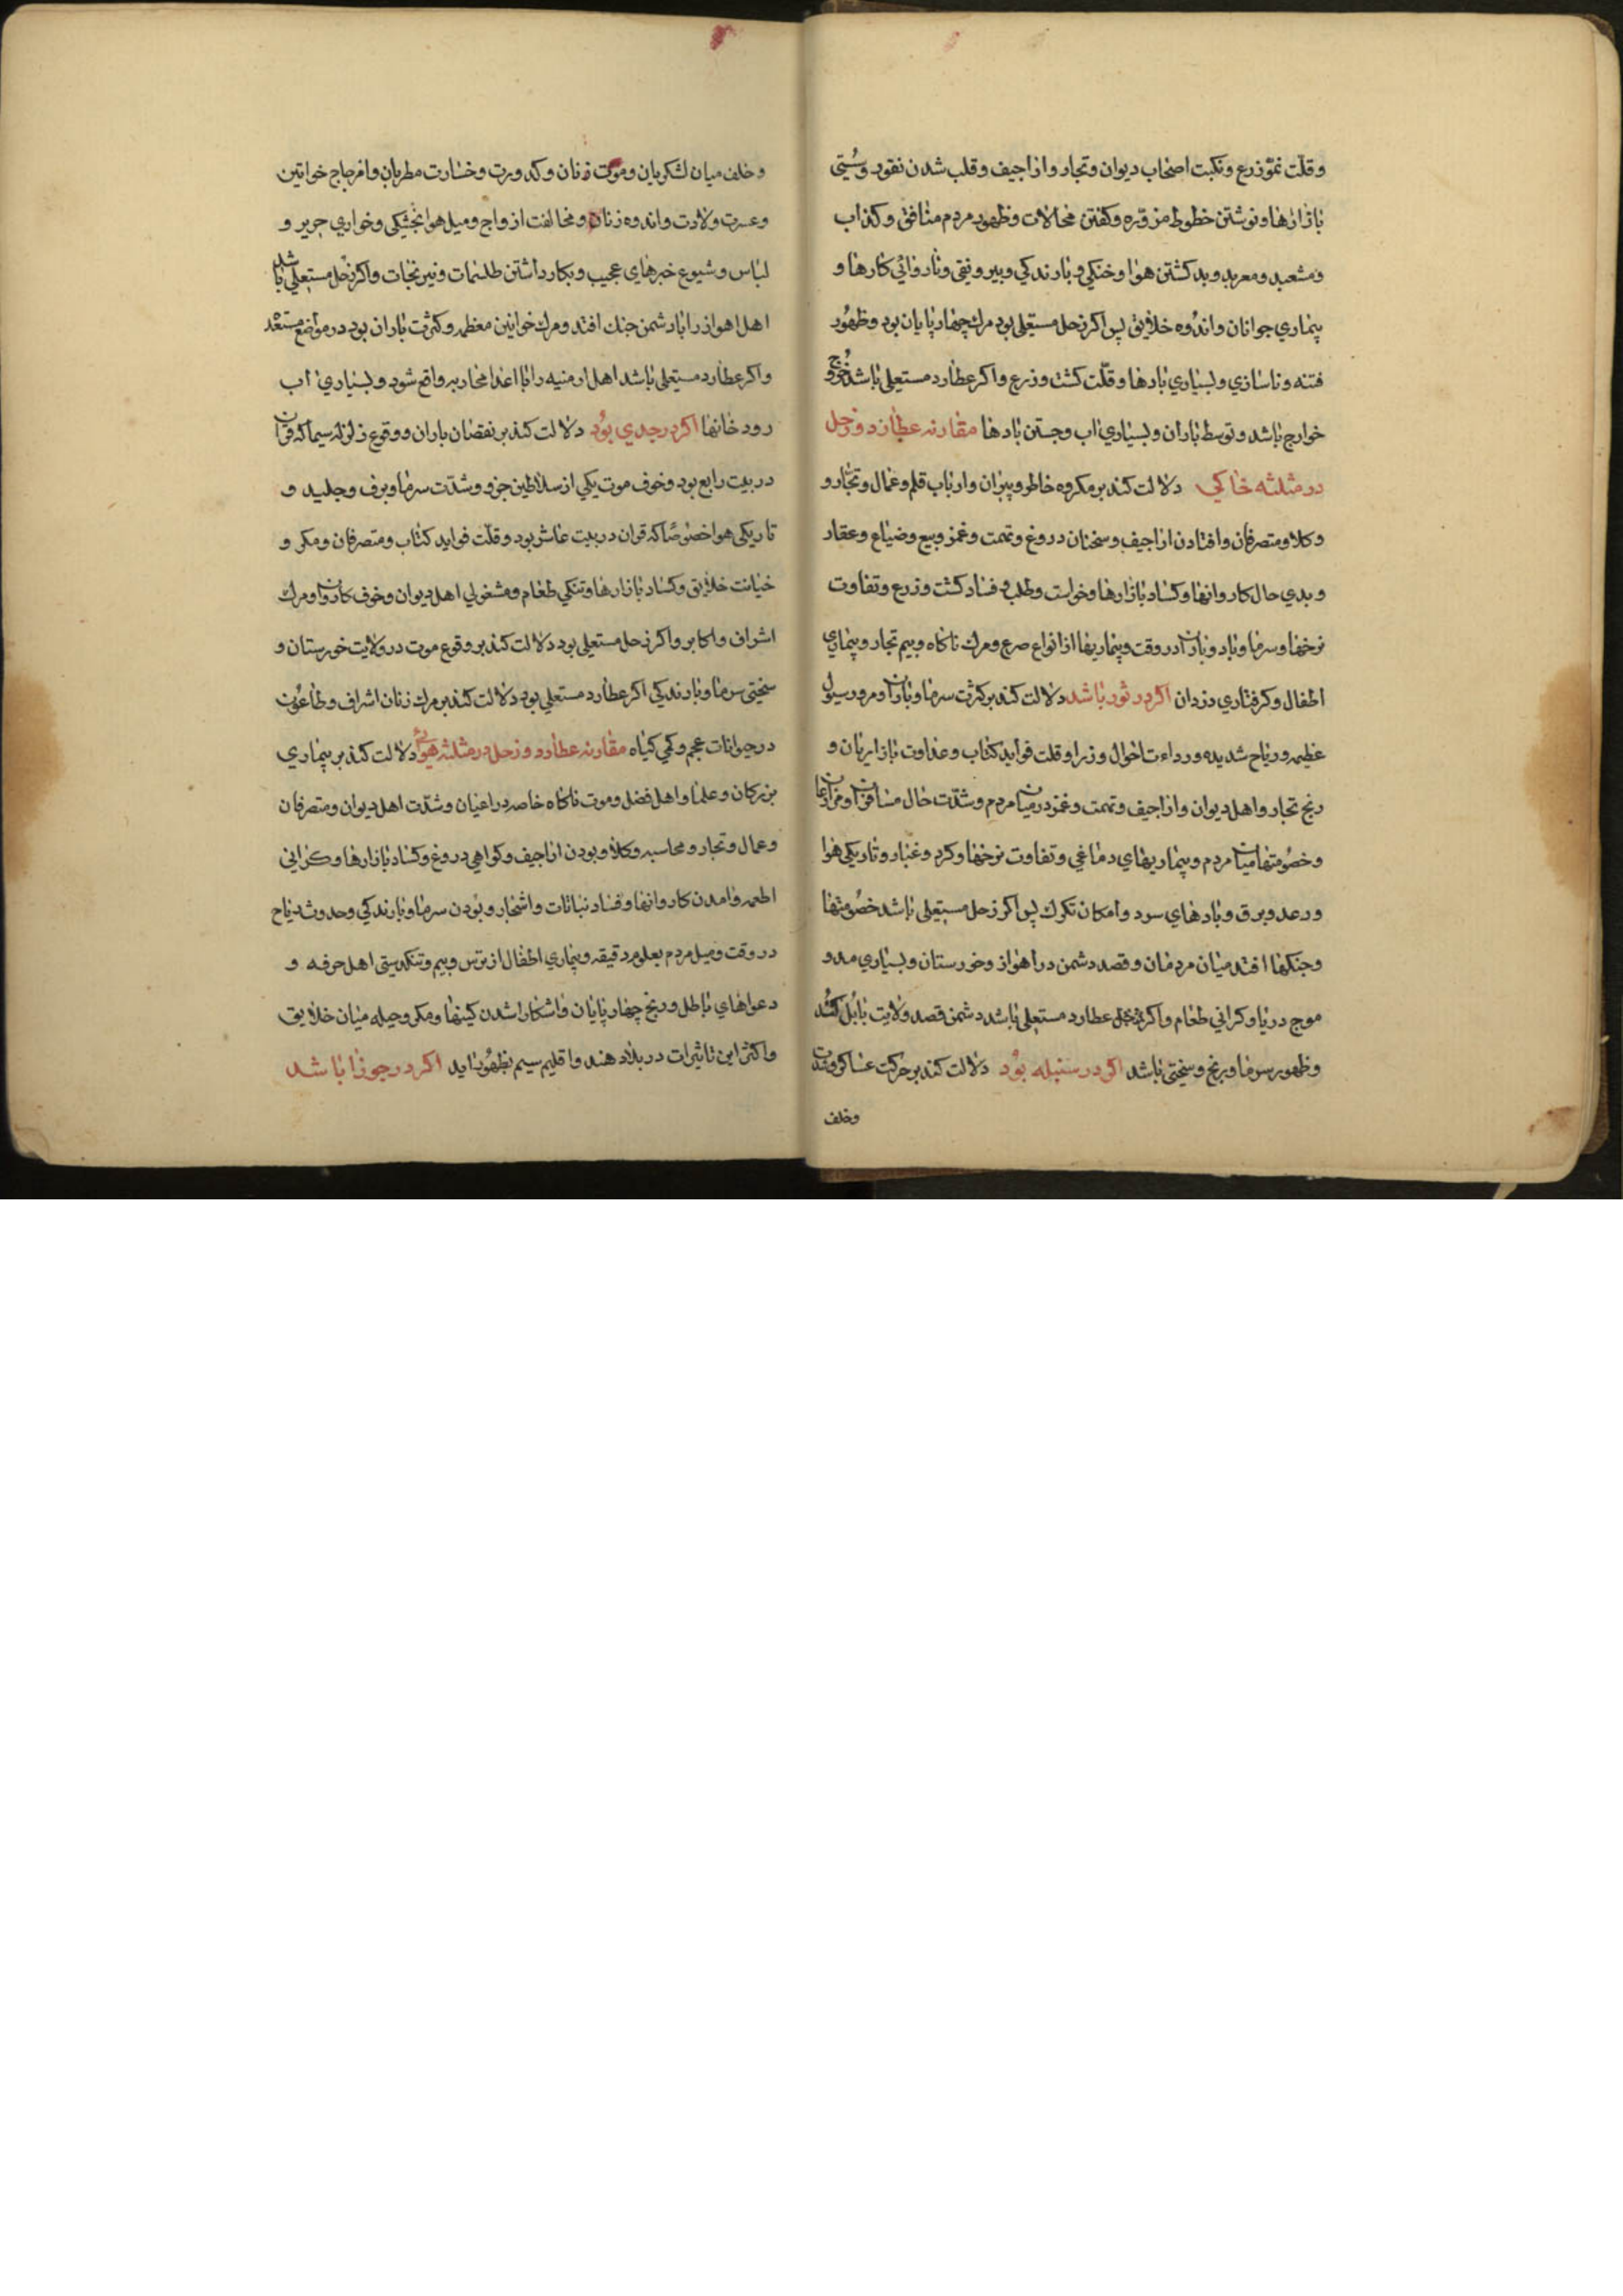 وقلّت نموّ زرع ونکبت اصحاب دیوان وتجار واراجیف وقلب شدن نقود وسُستی
بازارها ونوشتن خطوط مزوّره وکفتن محالات وظهور مردم منافق وکذاب
ومشعبد ومعربد وبد کشتن هوا وخنکی وبارندکی وبیرونقی وناروائی کارها و
بیماری جوانان واندوه خلایق پس اکر زحل مستعلی بود مرك چهارپایان بود وظهُور
فتنه وناسازی وبسیاری بادها وقلّت کشت وزرع واکر عطارد مستعلی باشد خروج
خوارج باشد وتوسط باران وبسیاری اب وجستن بادها مقارنه عطارد وزحل
در مثلثه خاکی دلالت کند بر مکروه خاطر وپیران وارباب قلم وعمال وتجّار و
وکلا ومتصرفان وافتادن اراجیف وسخنان دروغ وتهمت وغمز وبیع وضیاع وعقار
وبدی حال کاروانها وکساد بازارها وخواست وطلب وفساد کشت وزرع وتفاوت
نرخها وسرما وباد وباران در وقت وبیماریها از انواع صرع ومرك ناکاه وبیم تجار وبیماری
اطفال وکرفتاری دزدان اکر در ثور باشد دلالت کند بر کثرت سرما وباران ومرور سیول
عظیمه وریاح شدیده ورداءت احوال وزرا وقلت فواید کتاب وعداوت بازاریان و
رنج تجار واهل دیوان واراجیف وتهمت وغمز در میان مردم وشدّت حال مسافران ومزارعان
وخصُومتها میان مردم وبیماریهای دماغی وتفاوت نرخها وکرد وغبار وتاریکی هوا
ورعد وبرق وبادهای سرد وامکان تکرك پس اکر زحل مستعلی باشد خصُومتها
وجنکها افتد میان مردمان وقصد دشمن در اهواز وخورستان وبسیاری مد و
موج دریا وکرانی طعام واکر عطارد مستعلی باشد دشمن قصد ولایت بابُل کند
وظهور سرما ورنج وسختی باشد اکر در سنبله بوُد دلالت کند بر حرکت عساکر وفتنه
وخلف
وخلف میان لشکریان وموت زنان وکدورت وخسارت مطربان وانزعاج خواتین
وعسرت ولادت واندوه زنان ومخالفت ازواج ومیل هوا بخشکی وخواری حریر و
لباس وشیوع خبرهای عجیب وبکار داشتن طلسمات ونیرنجات واکر زحل مستعلی باشد
اهل اهواز را با دشمن جنك افتد ومرك خواتین معظمه وکثرت باران بود در مواضع مستعد
واکر عطارد مستعلی باشد اهل ارمنیه را با اعدا محاربه واقع شود وبسیاری اب
رودخانها اکر در جدی بوُد دلالت کند بر نقصان باران ووقوع زلزله سیما که قران
در بیت رابع بود وخوف موت یکی از سلاطین جزو وشدّت سرما وبرف وجلید و
تاریکی هوا خصُوصًا که قران در بیت عاشر بود وقلّت فواید کتاب ومتصرفان ومکر و
خیانت خلایق وکساد بازارها وتنکی طعام ومشغولی اهل دیوان وخوف کاروان ومرك
اشراف واکابر واکر زحل مستعلی بود دلالت کند بر وقوع موت در ولایت خورستان و
سختی سرما وبارندکی اکر عطارد مستعلی بود دلالت کند بر مرك زنان اشراف وطاعُون
در حیوانات عجم وکمی کیاه مقارنه عطارد وزحل در مثلثه هوائی دلالت کند بر بیماری
بزرکان وعلما واهل فضل وموت ناکاه خاصه در اعیان وشدّت اهل دیوان ومتصرفان
وعمال وتجار ومحاسبه وکلا وبودن اراجیف وکواهی دروغ وکساد بازارها وکرانی
اطعمه وامدن کاروانها وفساد نباتات واشجار وبودن سرما وبارندکی وحدوث ریاح
در وقت ومیل مردم بعلوم دقیقه وبیماری اطفال از ترس وبیم وتنکدستی اهل حرفه و
دعواهای باطل ورنج چهارپایان واشکارا شدن کینها ومکر وحیله میان خلایق
واکثر این تاثیرات در بلاد هند واقلیم سیم بظهُور اید اکر در جوزا باشد